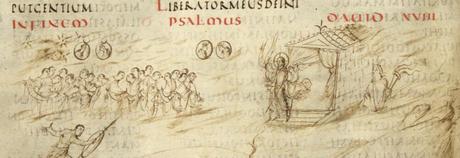 PUTGENTIUM LIBERATORMEUSDEINI
INFINEM PSALMUS DAUID XVIII